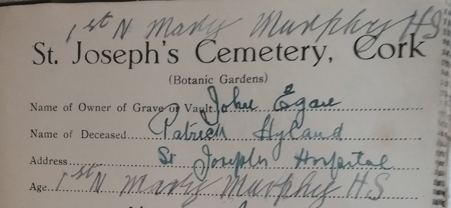 1st N Mary Murphy HS
St. Joseph's Cemetery, Cork
(Botanic Gardens)
Name of Owner of Grave or Vault John Egare
Name of Deceased Patrick Hyland
Address St Josephs Hospital
Age 1st N Mary Murphy HS